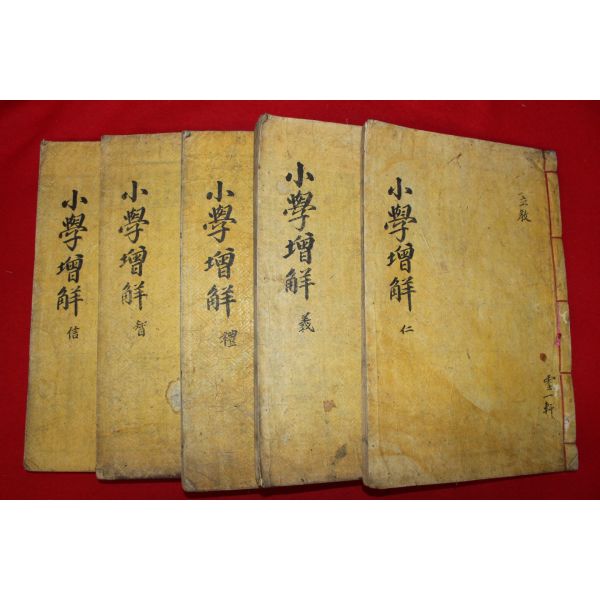 立教
一軒
小學增觧
仁
小學增觧
義
小學增觧
禮
小學增觧
智
小學增觧
信